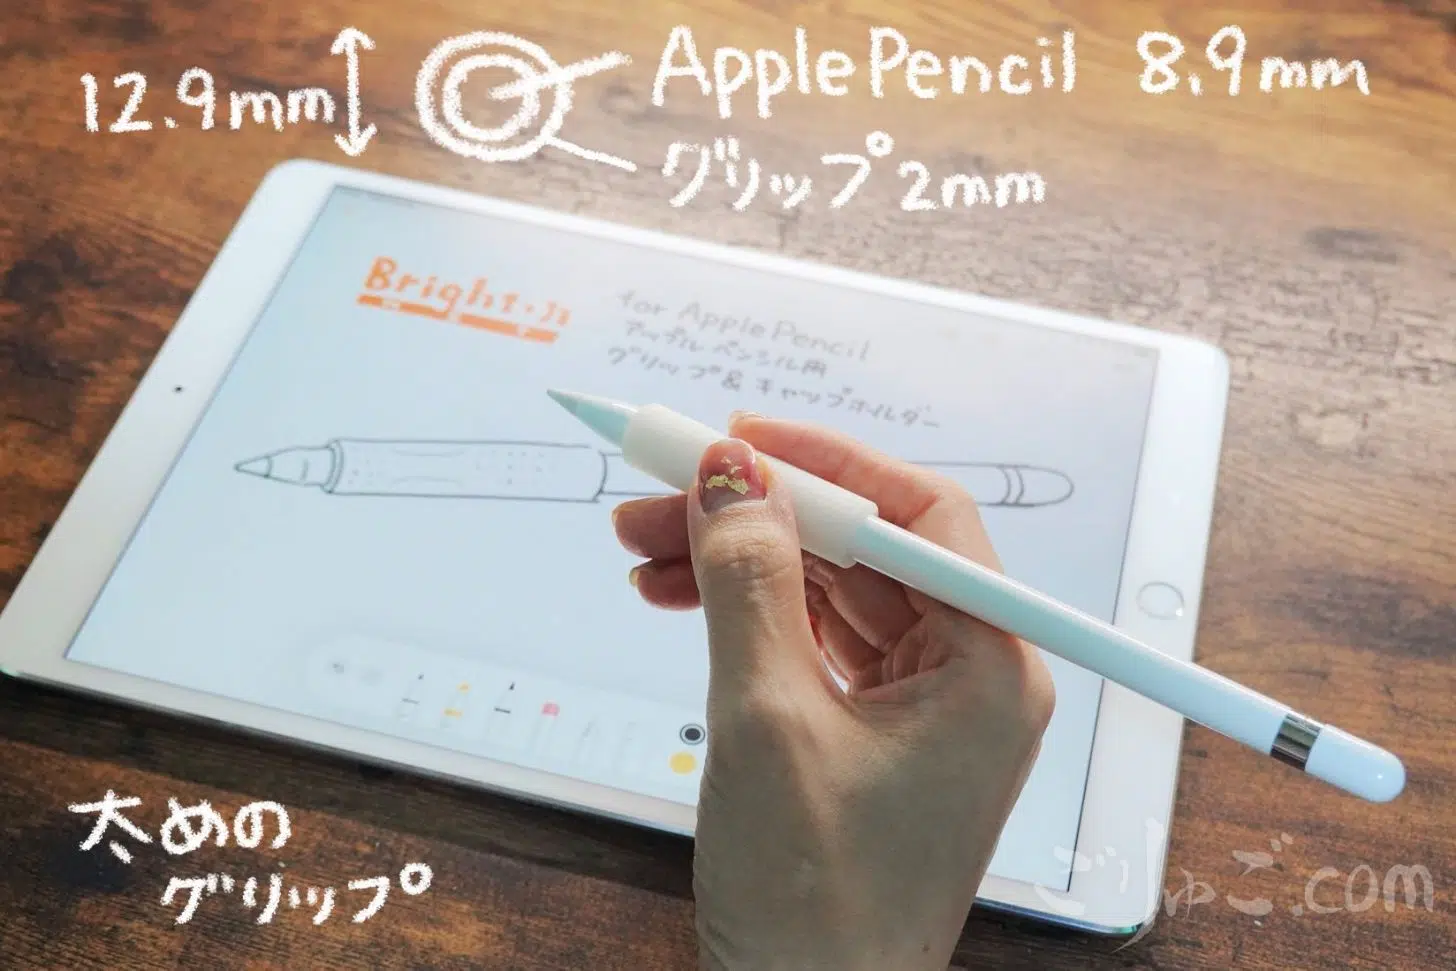 12.9mm
ApplePencil 8.9mm
グリップ 2mm
Bright・Ji
for Apple Pencil
アップルペンシル用
グリップ&キャップホルダー
太めの
グリップ
ごりゅご.com